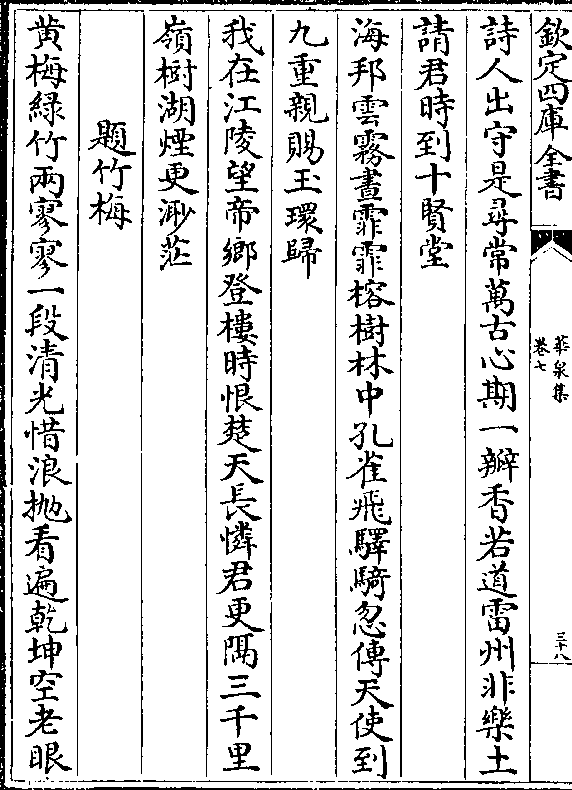 欽定四庫全書
華泉集
卷七
三十八
詩人出守是尋常萬古心期一瓣香若道雷州非樂土
請君時到十賢堂
海邦雲霧晝霏霏榕樹林中孔雀飛驛騎忽傳天使到
九重親賜玉環歸
我在江陵望帝鄉登樓時恨楚天長憐君更隔三千里
嶺樹湖煙更渺茫
題竹梅
黄梅綠竹兩寥寥一段清光惜浪抛看遍乾坤空老眼